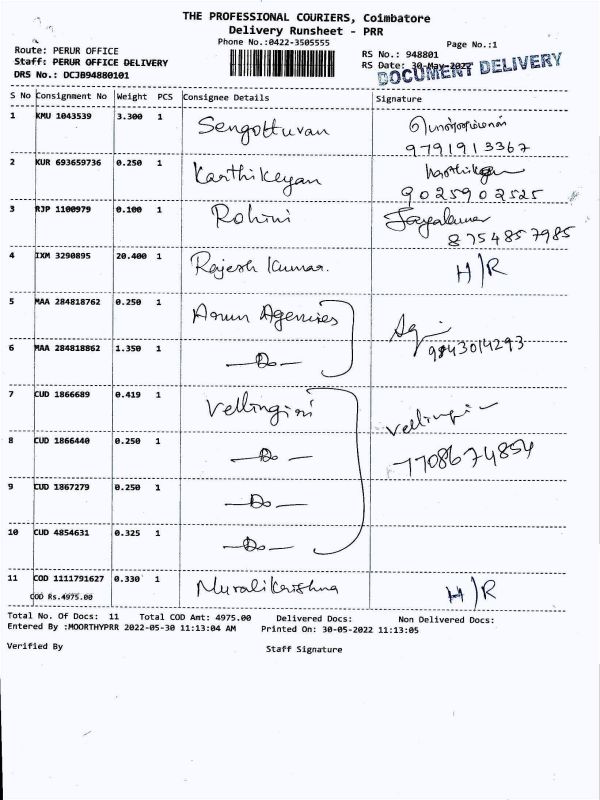 THE PROFESSIONAL COURIERS, Coimbatore
Delivery Runsheet - PRR
Phone No.:0422-3505555
Page No.:1
Route: PERUR OFFICE
RS No.: 948801
Staff: PERUR OFFICE DELIVERY
RS Date: 30-May-2022
DOCUMENT DELIVERY
DRS No.: DCJB94880101
S No Consignment No Weight PCS Consignee Details Signature
1 KMU 1043539 3.300 1 Sengottuvan
9791913367
2 KUR 693659736 0.250 1 Karthikeyan Karthikeyan
9025902525
3 RJP 1100979 0.100 1 Rohini Jayakumar
8754857985
4 IXM 3290895 20.400 1 Rajesh Kumar. H/R
5 MAA 284818762 0.250 1 Arun Agencies
9843014293
6 MAA 284818862 1.350 1 — Do —
7 CUD 1866689 0.419 1 Vellingiri Vellingiri
8 CUD 1866440 0.250 1 — Do — 7708674854
9 CUD 1867279 0.250 1 — Do —
10 CUD 4854631 0.325 1 — Do —
11 COD 1111791627 0.330 1 Muralikrishna H/R
COD Rs.4975.00
Total No. Of Docs: 11 Total COD Amt: 4975.00 Delivered Docs: Non Delivered Docs:
Entered By :MOORTHYPRR 2022-05-30 11:13:04 AM Printed On: 30-05-2022 11:13:05
Verified By Staff Signature